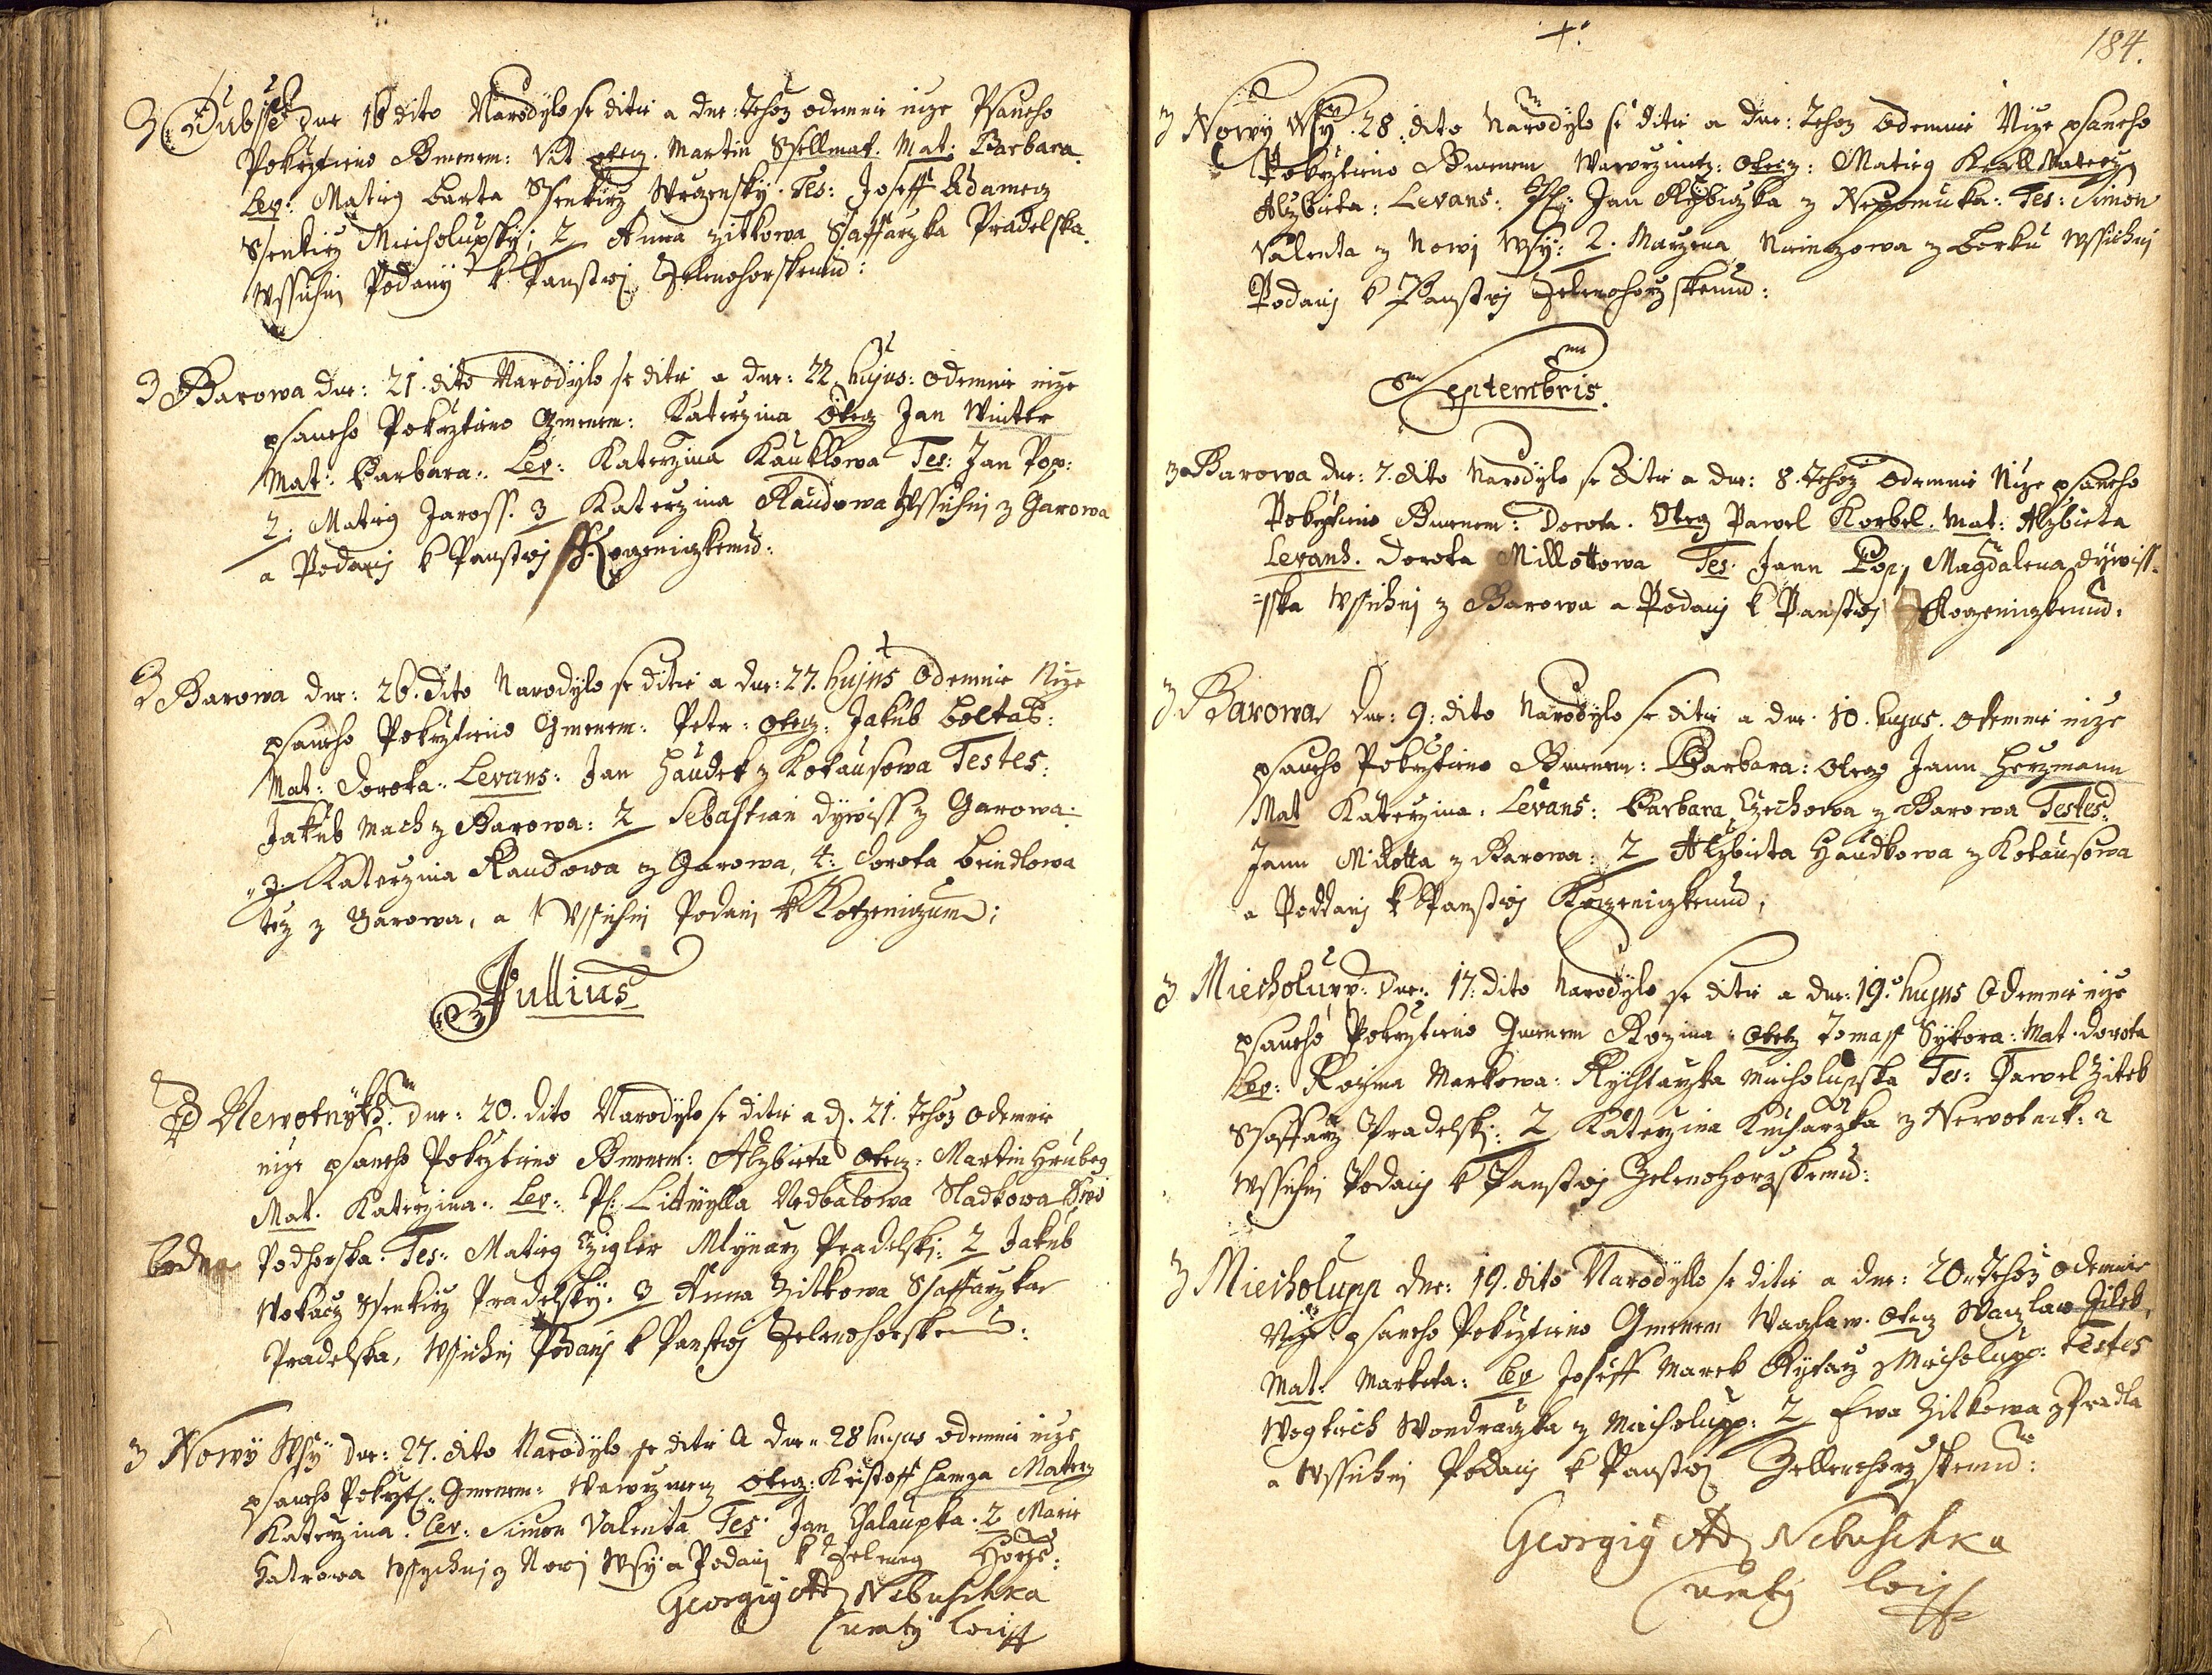 Z Dubssk dne 16 dito Narodylo se ditie a dne: Tehoz odemnie nize Psaneho
Pokrztieno Gmenem: Vit otecz. Martin Ssellmat. Mat: Barbara.
Lev: Matieg Barta Ssenkirz Tes: Joseff Adamecz
Ssenkirz Miecholupsky; 2 Anna Zitkowa Ssaffarzka Pradelska.
Wssichni Podany k Panstwj Zelenohorskemu:
Z Barowa dne: 21. dito Narodylo se ditie a dne: 22. hujus: odemnie nize
psaneho Pokrztieno Gmenem: Katerzina Otecz Jan Winter
Mat: Barbara: Lev: Katerzina Kauklowa Tes: Jan Pop:
2: Matieg Jaross. 3 Katerzina Raudowa Wssichni z Garowa
a Podanj k Panstwj Kozeniczkemu:
Z Barowa dne: 26. dito Narodylo se ditie a dne: 27. hujus Odemnie Nize
psaneho Pokrztieno Gmenem: Petr: otecz: Jakub Boltab:
Mat: Dorota: Levans: Jan Haudek z Kotausowa Testes:
Jakub Mach z Barowa: 2 Sebastian Dywiss z Garowa:
3 Katerzina Raudowa z Garowa, 4: Dorota Brindlowa
tez z Garowa, a Wssichni Podanj k Kotzeniczum;
Jullius
W Newotnykh. dne: 20. dito Narodylo se ditie a d. 21. Tehoz odemnie
nize psaneho Pokrztieno Gmenem: Alzbieta Otecz: Martin Hrubeg
Mat. Katerzina: Lev: Littwylla Nedbalowa Sladkowa
Podhorska. Tes: Matieg Czigler Mlynarz Pradelskj: 2 Jakub
Wokacz Ssenkirz Pradelsky. 3 Anna Zitkowa Ssaffarzka
Pradelska, Wssichni Podanj k Panstwj Zelenohorskemu:
Z Nowy Wsy dne: 27. dito Narodylo se ditie A dne 28 hujus odemnie nize
psaneho Pokrzt. Gmenem: Wawrzinecz otecz: Kristoff Hamza Materz
Katerzina. Lev: Simon Valenta Tes: Jan Chalaupka. 2 Marie
Hatrowa Wssychnj z Nowj Wsy a Podanj k Zeleneg Horze:
Georgig Ad Nebuschka
184.
Z Nowy Wsy. 28. dito Narodylo se ditie a dne: Tehoz Odemnie Nize psaneho
Pokrztieno Gmenem Wawrzinetz: Otecz: Matieg Krall Materz
Alzbieta: Levans: Jan Rybiczka z Nepomuka: Tes: Simon
Valenta z Nowj Wsy: 2. Marzena Niemczowa z Borku Wssichni
Podanj k Panstwj Zelenohorzskemu:
Septembris.
Z Barowa dne: 7. dito Narodylo se Ditie a dne: 8. Tehoz Odemnie Nize psaneho
Pokrztieno Gmenem: Dorota. Otecz Pawel Korbel. Mat: Alzbieta
Levans. Dorota Millottowa Tes: Jann Pop, Magdalena Dywiss-
=sska Wssichnj z Barowa a Podanj k Panstwj Kozeniczkemu:
Z Barowa dne: 9: dito Narodylo se ditie a dne. 10. hujus. odemnie nize
psaneho Pokrztieno Gmenem: Barbara: Otecz Jann Herzmann
Mat Katerzina: Levans: Barbara Czechowa z Barowa Testes
Jann Milotta z Barowa: 2 Alzbieta Haudkowa z Kotausowa
a Poddanj k Panstwj Kozeniczkemu;
Z Miecholupp: dne: 17: dito Narodylo se ditie a dne: 19. hujus Odemnie nize
psaneho Pokrztieno Gmenem Rozina: otecz Tomass Sykora: Mat. Dorota
Lev: Rozina Markowa: Rychtarzka Miecholupska Tes: Pawel Zitek
Ssaffarz Pradelskj: 2 Katerzina Kucharzka z Newotnik: a
Wssichni Podanj k Panstwj Zelenohorzskemu:
Z Miecholupp dne: 19. dito Narodyllo se ditie a dne: 20. Tehoz odemnie
Nize psaneho Pokrztieno Gmenem Waczlaw. otecz Waczlaw Zilek,
Mat. Marketa: Lev Joseff Marek Rytarz z Miecholupp: Testes
Wogtiech Wondraczka z Miecholupp: 2 Ewa Zitkowa z Pradla
a Wssichni Podanj k Panstwj Zellenohorzskemu:
Georgig Ad Nebuschka